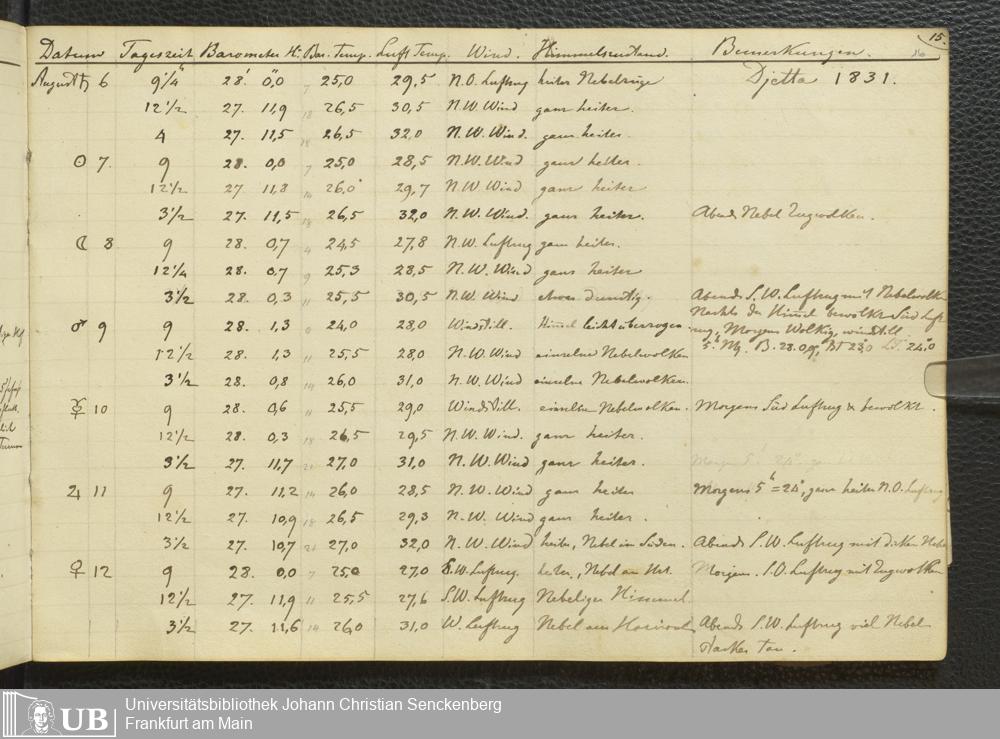 15.
Datum Tageszeit Barometer H. Bar. Temp. Luft Temp. Wind. Himmelszustand. Bemerkungen.
August ♄ 6 9 1/4 28' 0,0 7 25,0 29,5 N.O. Luftzug heiter Nebelzüge Djetta 1831.
12 1/2 27. 11,9 18 26,5 30,5 N.W. Wind ganz heiter.
4 27. 11,5 18 26,5 32,0 N.W. Wind. ganz heiter.
☉ 7. 9 28. 0,0 7 25,0 28,5 N.W. Wind ganz heiter.
12 1/2 27 11,8 14 26,0 29,7 N.W Wind ganz heiter
3 1/2 27. 11,5 18 26,5 32,0 N.W. Wind. ganz heiter. Abends Nebel Zugwolken.
☾ 8 9 28. 0,7 4 24,5 27,8 N.W. Luftzug ganz heiter.
12 1/4 28. 0,7 9 25,3 28,5 N.W. Wind ganz heiter
3 1/2 28. 0,3 11 25,5 30,5 N.W. Wind etwas dunstig. Abends S.W. Luftzug mit Nebelwolken
Nachts der Himmel bewolkt Süd Luft-
♂ 9 9 28. 1,3 0 24,0 28,0 Windstill. Himmel leicht überzogen zug, Morgens Wolkig, windstill
12 1/2 28. 1,3 11 25,5 28,0 N.W. Wind einzelne Nebelwolken 5h Mg. B. 28. BT 23,0 LT. 24,0
3 1/2 28. 0,8 14 26,0 31,0 N.W. Wind einzelne Nebelwolken.
☿ 10 9 28. 0,6 11 25,5 29,0 Windstill. einzelne Nebelwolken. Morgens Süd Luftzug & bewolkt.
12 1/2 28. 0,3 18 26,5 29,5 N.W. Wind. ganz heiter.
3 1/2 27. 11,7 21 27,0 31,0 N.W. Wind ganz heiter.
♃ 11 9 27. 11,2 14 26,0 28,5 N.W. Wind ganz heiter Morgens 5h = 24°, ganz heiter N.O. Luftzug
12 1/2 27. 10,9 18 26,5 29,3 N.W. Wind ganz heiter.
3 1/2 27. 10,7 21 27,0 32,0 N.W. Wind heiter, Nebel im Süden. Abends S.W. Luftzug mit dicken Nebel
♀ 12 9 28. 0,0 7 25,0 27,0 S.W. Luftzug. heiter, Nebel am Hrt. Morgens. S.O. Luftzug mit Zugwolken
12 1/2 27. 11,9 11 25,5 27,6 S.W. Luftzug Nebeliger Himmel.
3 1/2 27. 11,6 14 26,0 31,0 W. Luftzug Nebel am Horizont Abends S.W. Luftzug viel Nebel
starker Tau.
UB
Universitätsbibliothek Johann Christian Senckenberg
Frankfurt am Main